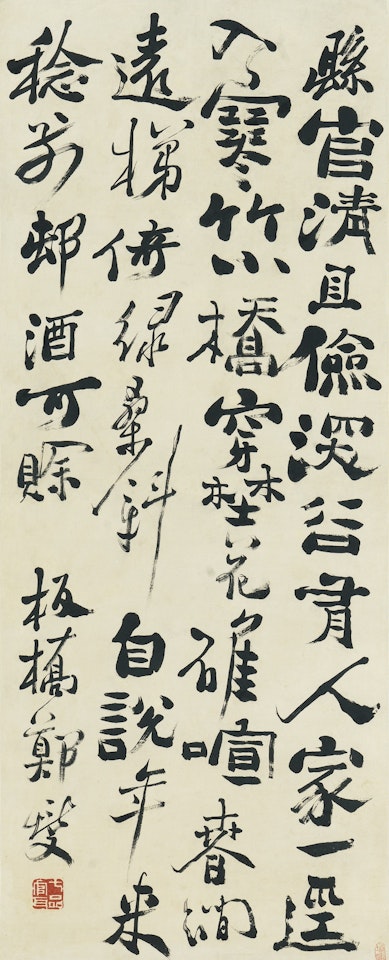 縣官清且儉深谷有人家一逕
入寒竹小橋穿埜花碓喧春澗
遠梯倚綠桑斜自說年来
稔前邨酒可賒
板橋鄭燮
七品官耳